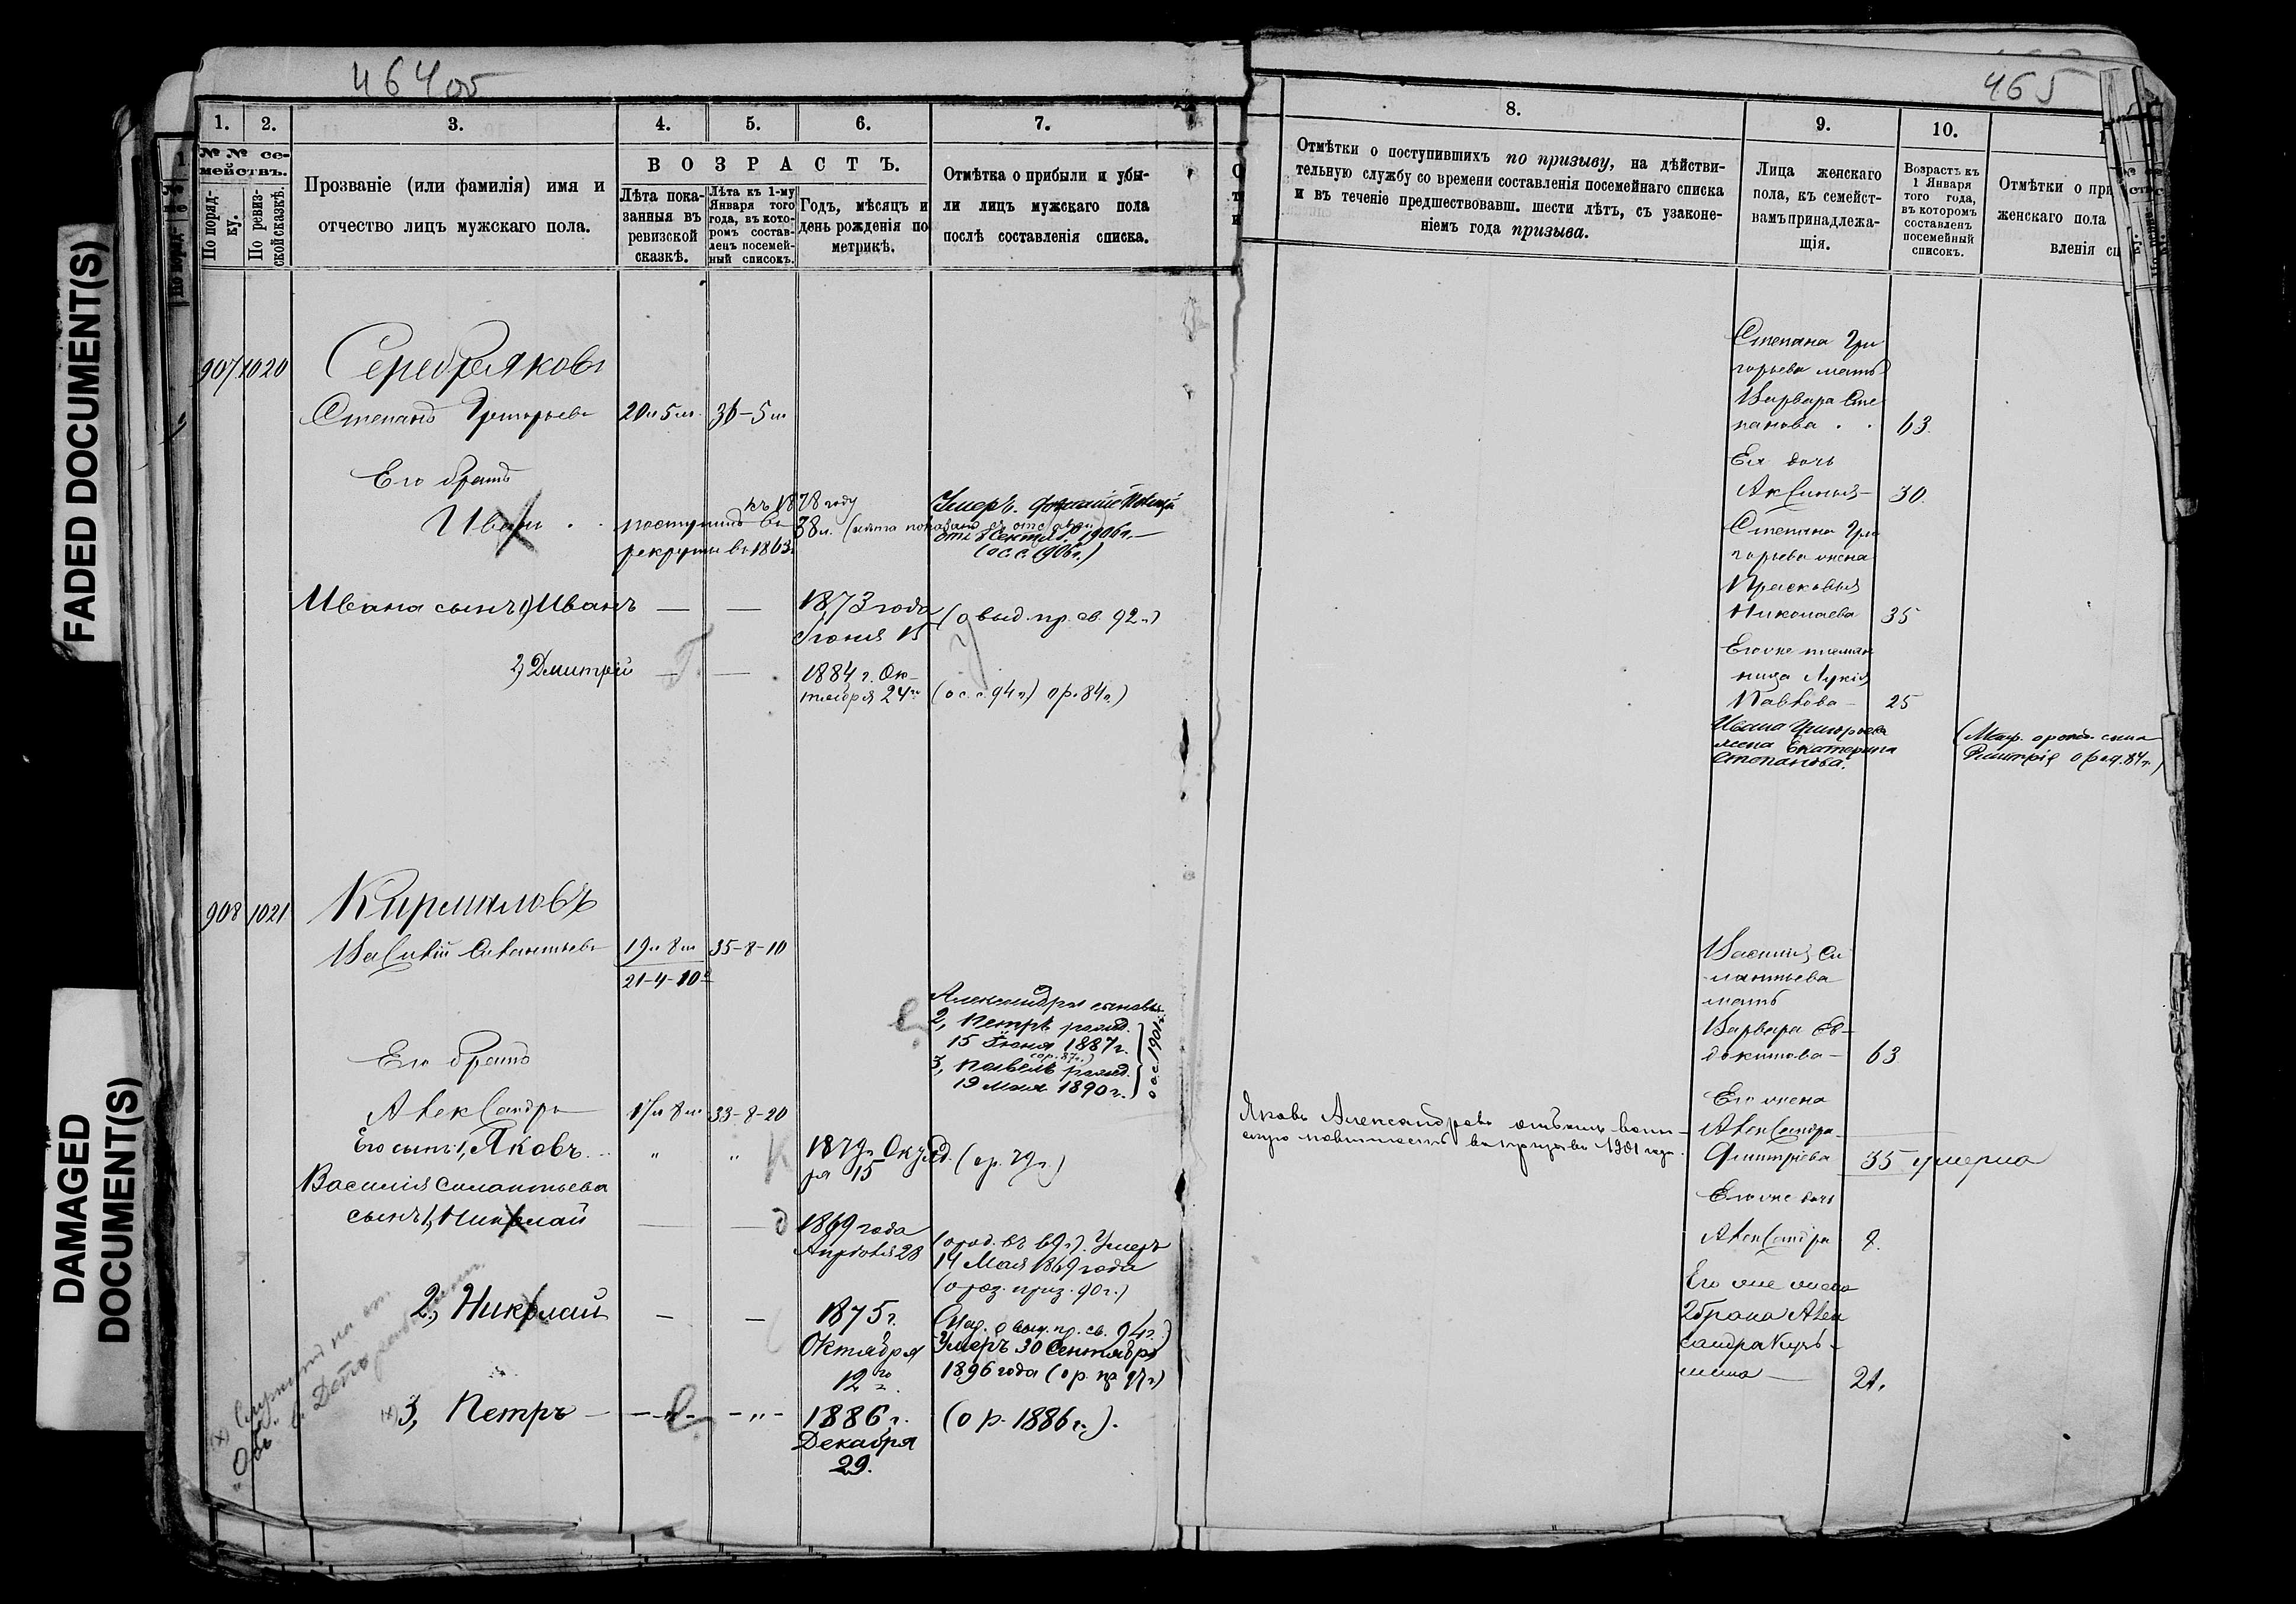 FADED DOCUMENT(S)
DAMAGED
DOCUMENT(S)
464 об
1.
2.
3.
4.
5.
6.
7.
№ № се-
мействъ.
По поряд-
ку.
По ревиз-
ской сказкѣ.
Прозваніе (или фамилія) имя и
отчество лицъ мужскаго пола.
ВОЗРАСТЪ.
Лѣта пока-
занныя въ
ревизской
сказкѣ.
Лѣта къ 1-му
Января того
года, въ кото-
ромъ состав-
ленъ посемей-
ный списокъ.
Годъ, мѣсяцъ и
день рожденія по
метрикѣ.
Отмѣтка о прибыли и убы-
ли лицъ мужскаго пола
послѣ составленія списка.
907 1020 Серебряковъ
Степанъ Григорьевъ 20 л 5 м. 36-5 м
Его братъ
къ 1878 году
Иванъ поступилъ въ 38 л.
рекруты въ 1863
Умеръ.
отъ Сентяб. 1906 г.
(о с.с. 1906 г.)
Ивана сынъ 1) Иванъ — — 1873 года
Іюня 15
(о выд. пр. св. 92 г.)
2) Дмитрій — — 1884 г. Ок-
тября 24го
(о с.с. 94 г) о р. 84 г.)
908 1021 Кирилловъ
Василій Силантьевъ 19 л 8 м 35-8-10
21-4-10
Александра сыновья
2, Петръ рожд.
15 Іюня 1887 г.
(о р. 87 г.)
3, Павелъ рожд.
19 Мая 1890 г.
о с.с. 1901 г.
Его братъ
Александръ 17 л 8 м 33-8-20
Его сынъ 1, Яковъ " " 1879 г. Октяб
ря 15
(о р. 79 г.)
Василія Силантьева
сынъ 1, Николай — — 1869 года
Апрѣля 28
(о род. въ 69 г.). Умеръ
14 Мая 1869 года
(о роз. приз. 90 г.)
2, Николай — — 1875 г.
Октября
12го
о выд. пр. св. 94 г.)
Умеръ 30 Сентября
1896 года (о р. пр 97 г)
(х) 3, Петръ — " — 1886 г.
Декабря
29.
(о р. 1886 г.).
465
8.
9.
10.
Отмѣтки о поступившихъ по призыву, на дѣйстви-
тельную службу со времени составленія посемейнаго списка
и въ теченіе предшествовавш. шести лѣтъ, съ узаконе-
ніемъ года призыва.
Лица женскаго
пола, къ семейст-
вамъ принадлежа-
щія.
Возрастъ къ
1 Января
того года,
въ которомъ
составленъ
посемейный
списокъ.
Отмѣтки о пр
женскаго пола
вленія сп
Степана Гри
горьева мать
Варвара Сте
панова . . 63.
Ея дочь
Аксинья — 30.
Степана Гри
горьева жена
Прасковья
Николаева 35
Его же племян
ница Лукія
Павлова — 25
Ивана Григорьева
жена Екатерина
Степанова.
(Метр. о рожд. сына
Дмитрія о род. 84 г.)
Василія Си
лантьева
мать
Варвара Ев-
докимова — 63
Его жена
Александра
Дмитріева 35 умерла
Яковъ Александровъ отбылъ воин-
скую повинность въ призывъ 1901 года.
Его же дочь
Александра 8.
Его же жена
2 брака Алек
сандра Кузь-
мина — 21.